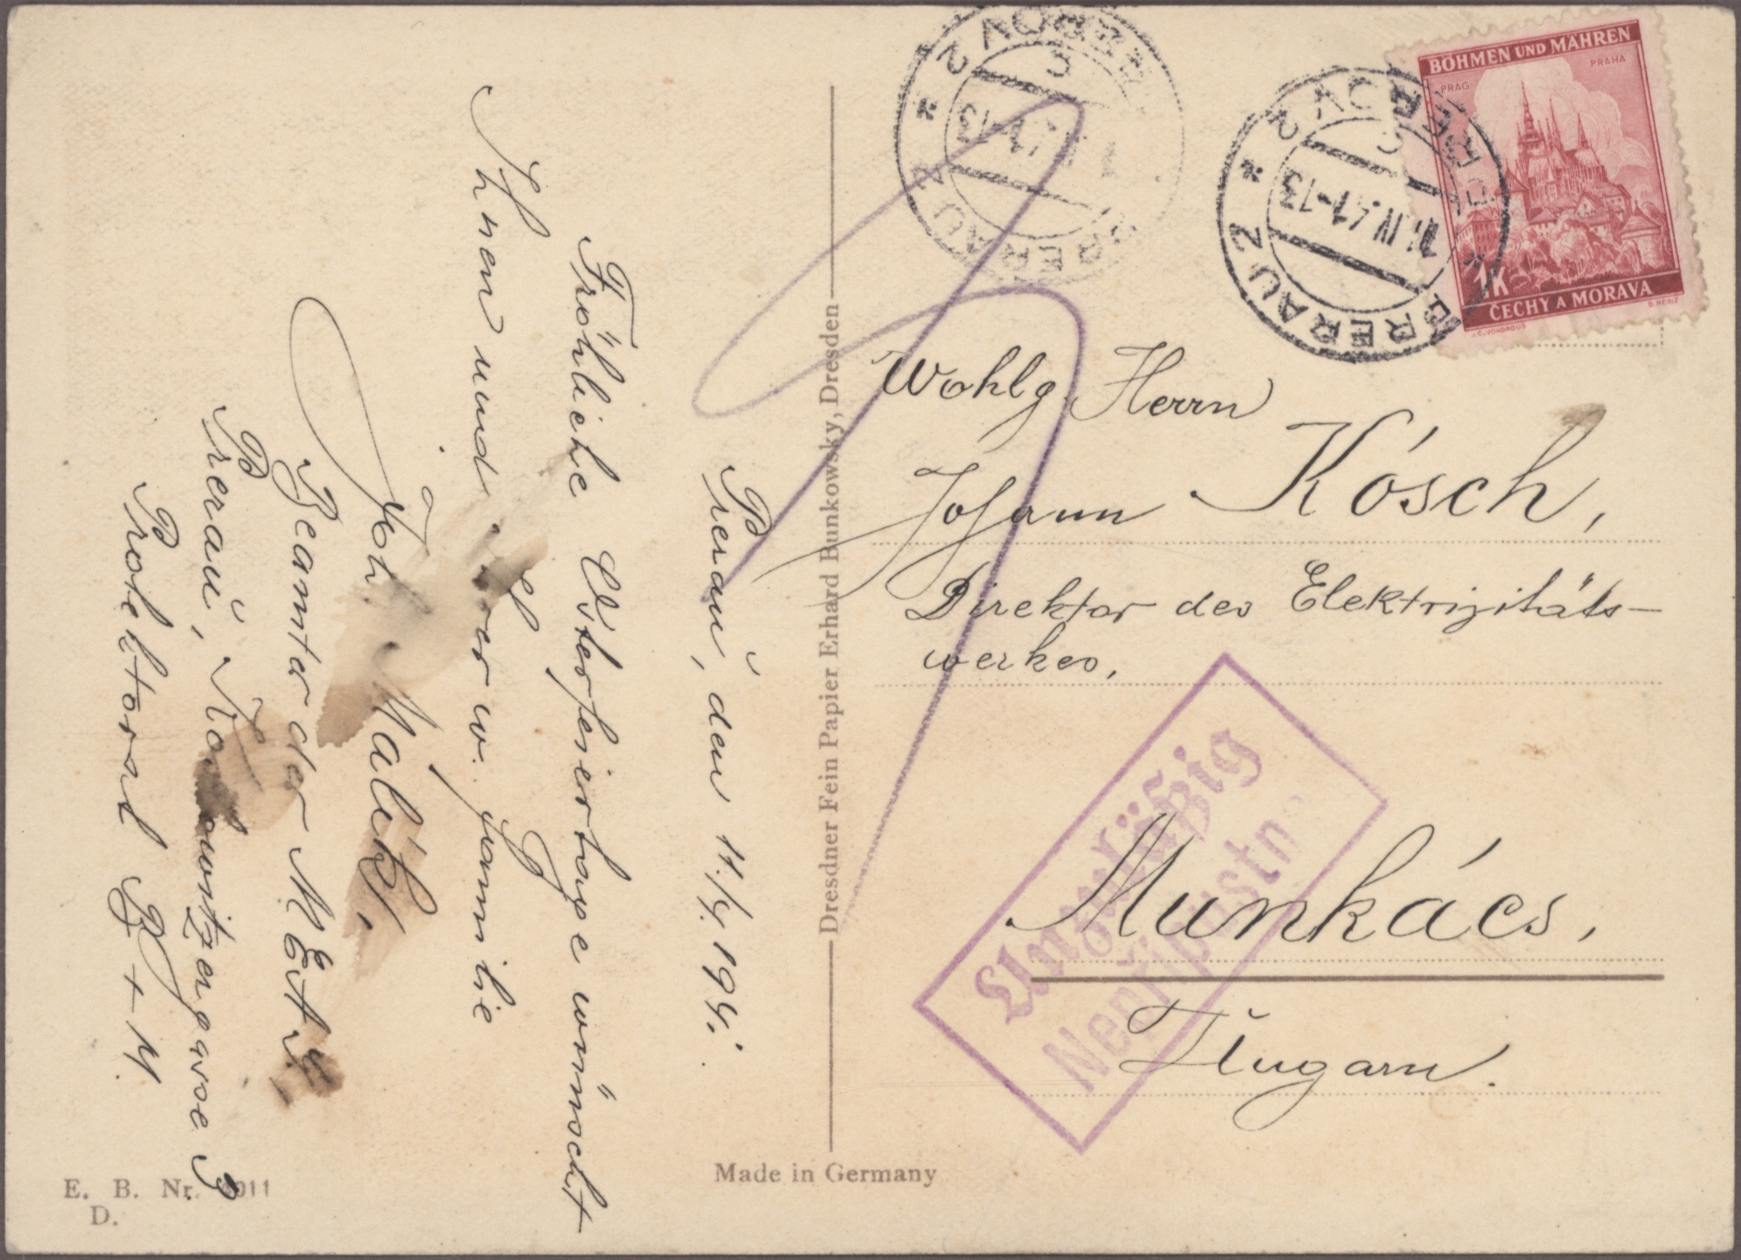 Prerau, den 11./4. 194.
Fröhliche Osterfeiertage wünscht
Ihnen und w. Familie
Joh. Malik,
Beamter der MEAG
Prerau, 3
Protektorat B + M.
Dresdner Fein Papier Erhard Bunkowsky, Dresden
E. B. Nr. 011
D.
Made in Germany
BÖHMEN UND MÄHREN
PRAG PRAHA
1K
ČECHY A MORAVA
PŘEROV 2
C
11.IV.41-13
PRERAU 2
PŘEROV 2
C
41-13
PRERAU 2
Wohlg. Herrn
Johann Kósch,
Direktor des Elektrizitäts-
werkes,
Munkács,
Ungarn.
Unzulässig
Nepřípustno